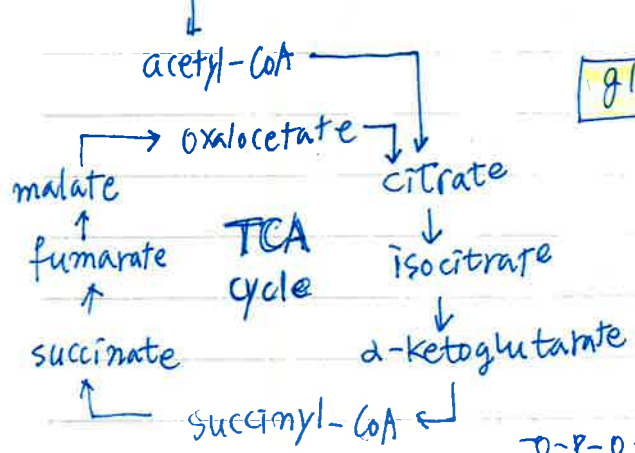 acetyl-CoA
gl
oxalocetate
malate
citrate
fumarate
TCA
cycle
isocitrate
succinate
α-ketoglutarate
succinyl-CoA